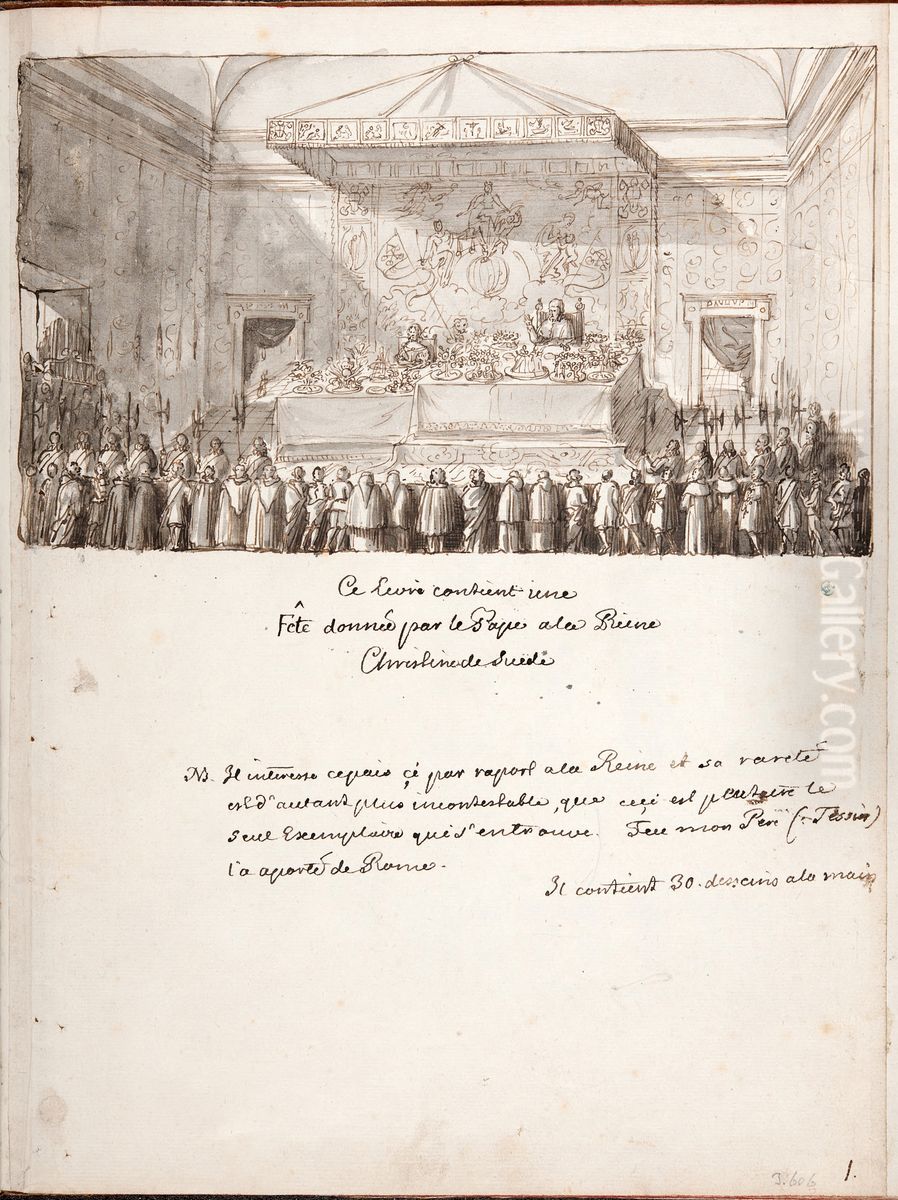 PAULUS III
Ce Livre contient une
Fête donnée par le Pape a la Reine
Christine de Suède
NB. Il interesse cepais çi par raport a la Reine et sa rareté
est d'autant plus incontestable, que ceçi est peutetre le
seul Exemplaire qui s'en trouve. Feu mon Pere (: Tessin)
l'a aporté de Rome.
Il contient 30. desseins a la main
3.606
1.
Gallery.com